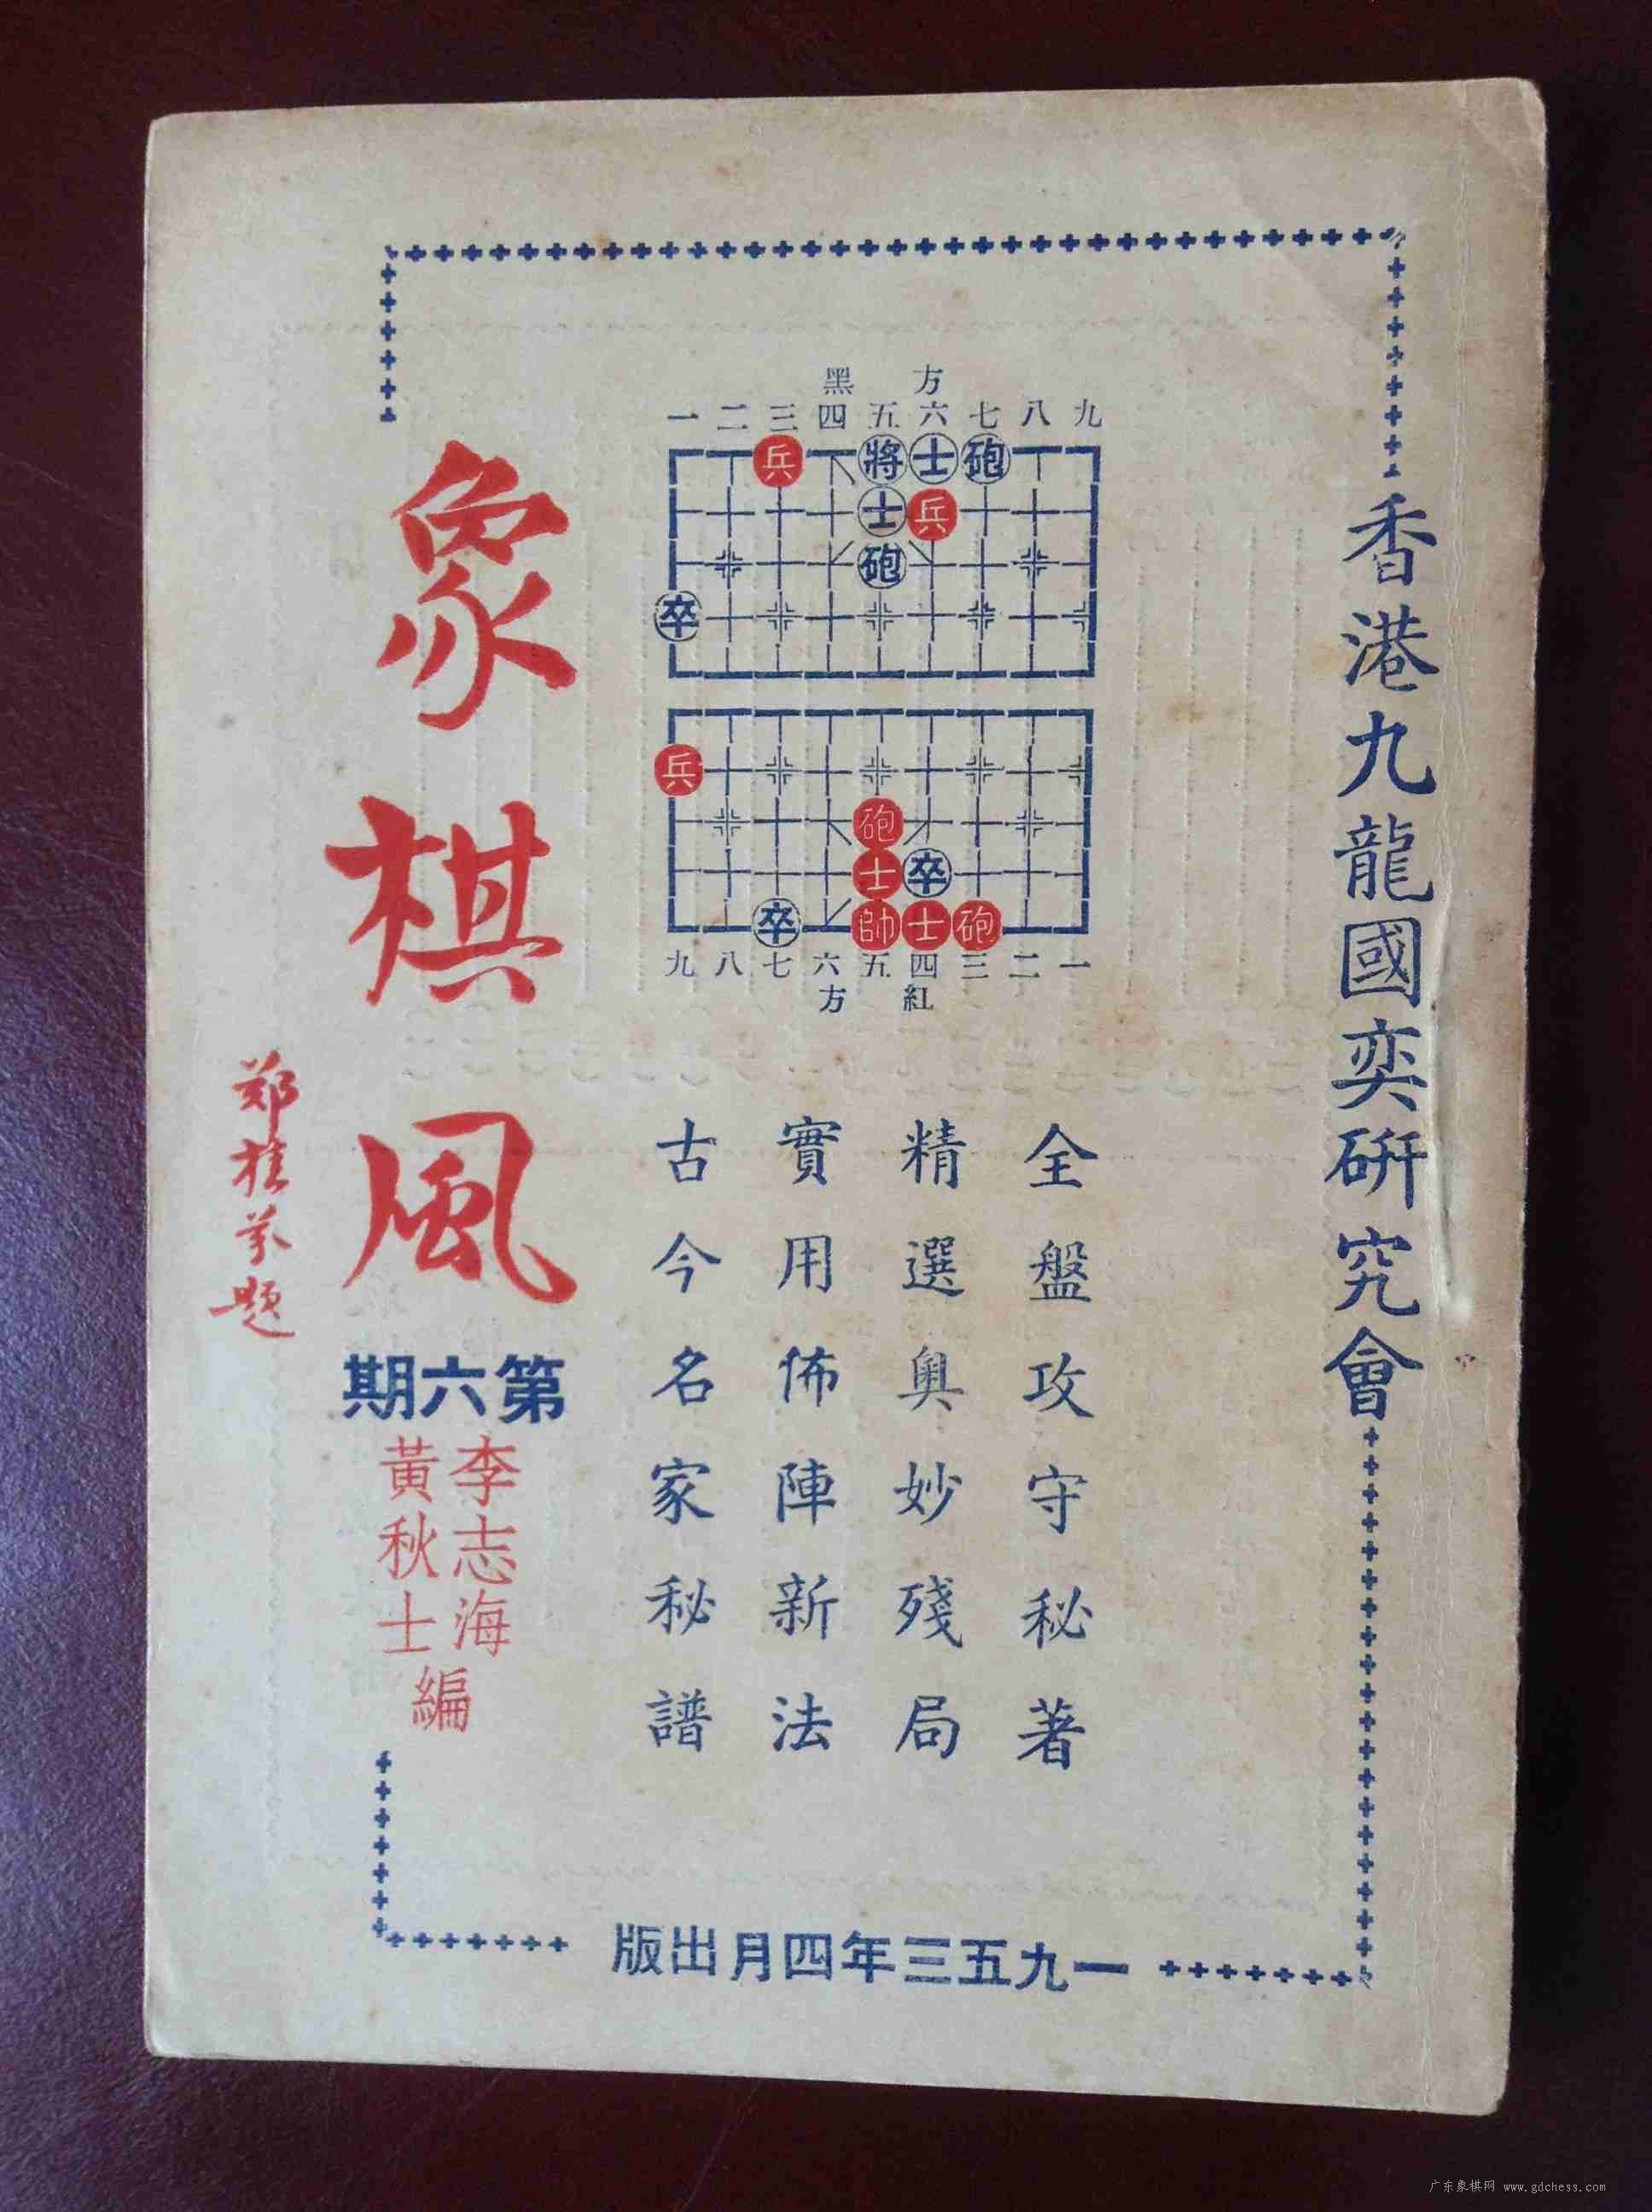 香港九龍國奕研究會
黑方
一二三四五六七八九
兵將士砲
士兵
砲
卒
兵
砲
士卒
卒帥士砲
九八七六五四三二一
方紅
全盤攻守秘著
精選奧妙殘局
實用佈陣新法
古今名家秘譜
象棋風
第六期
李志海
黃秋士
編
題
一九五三年四月出版
广东象棋网 www.gdchess.com